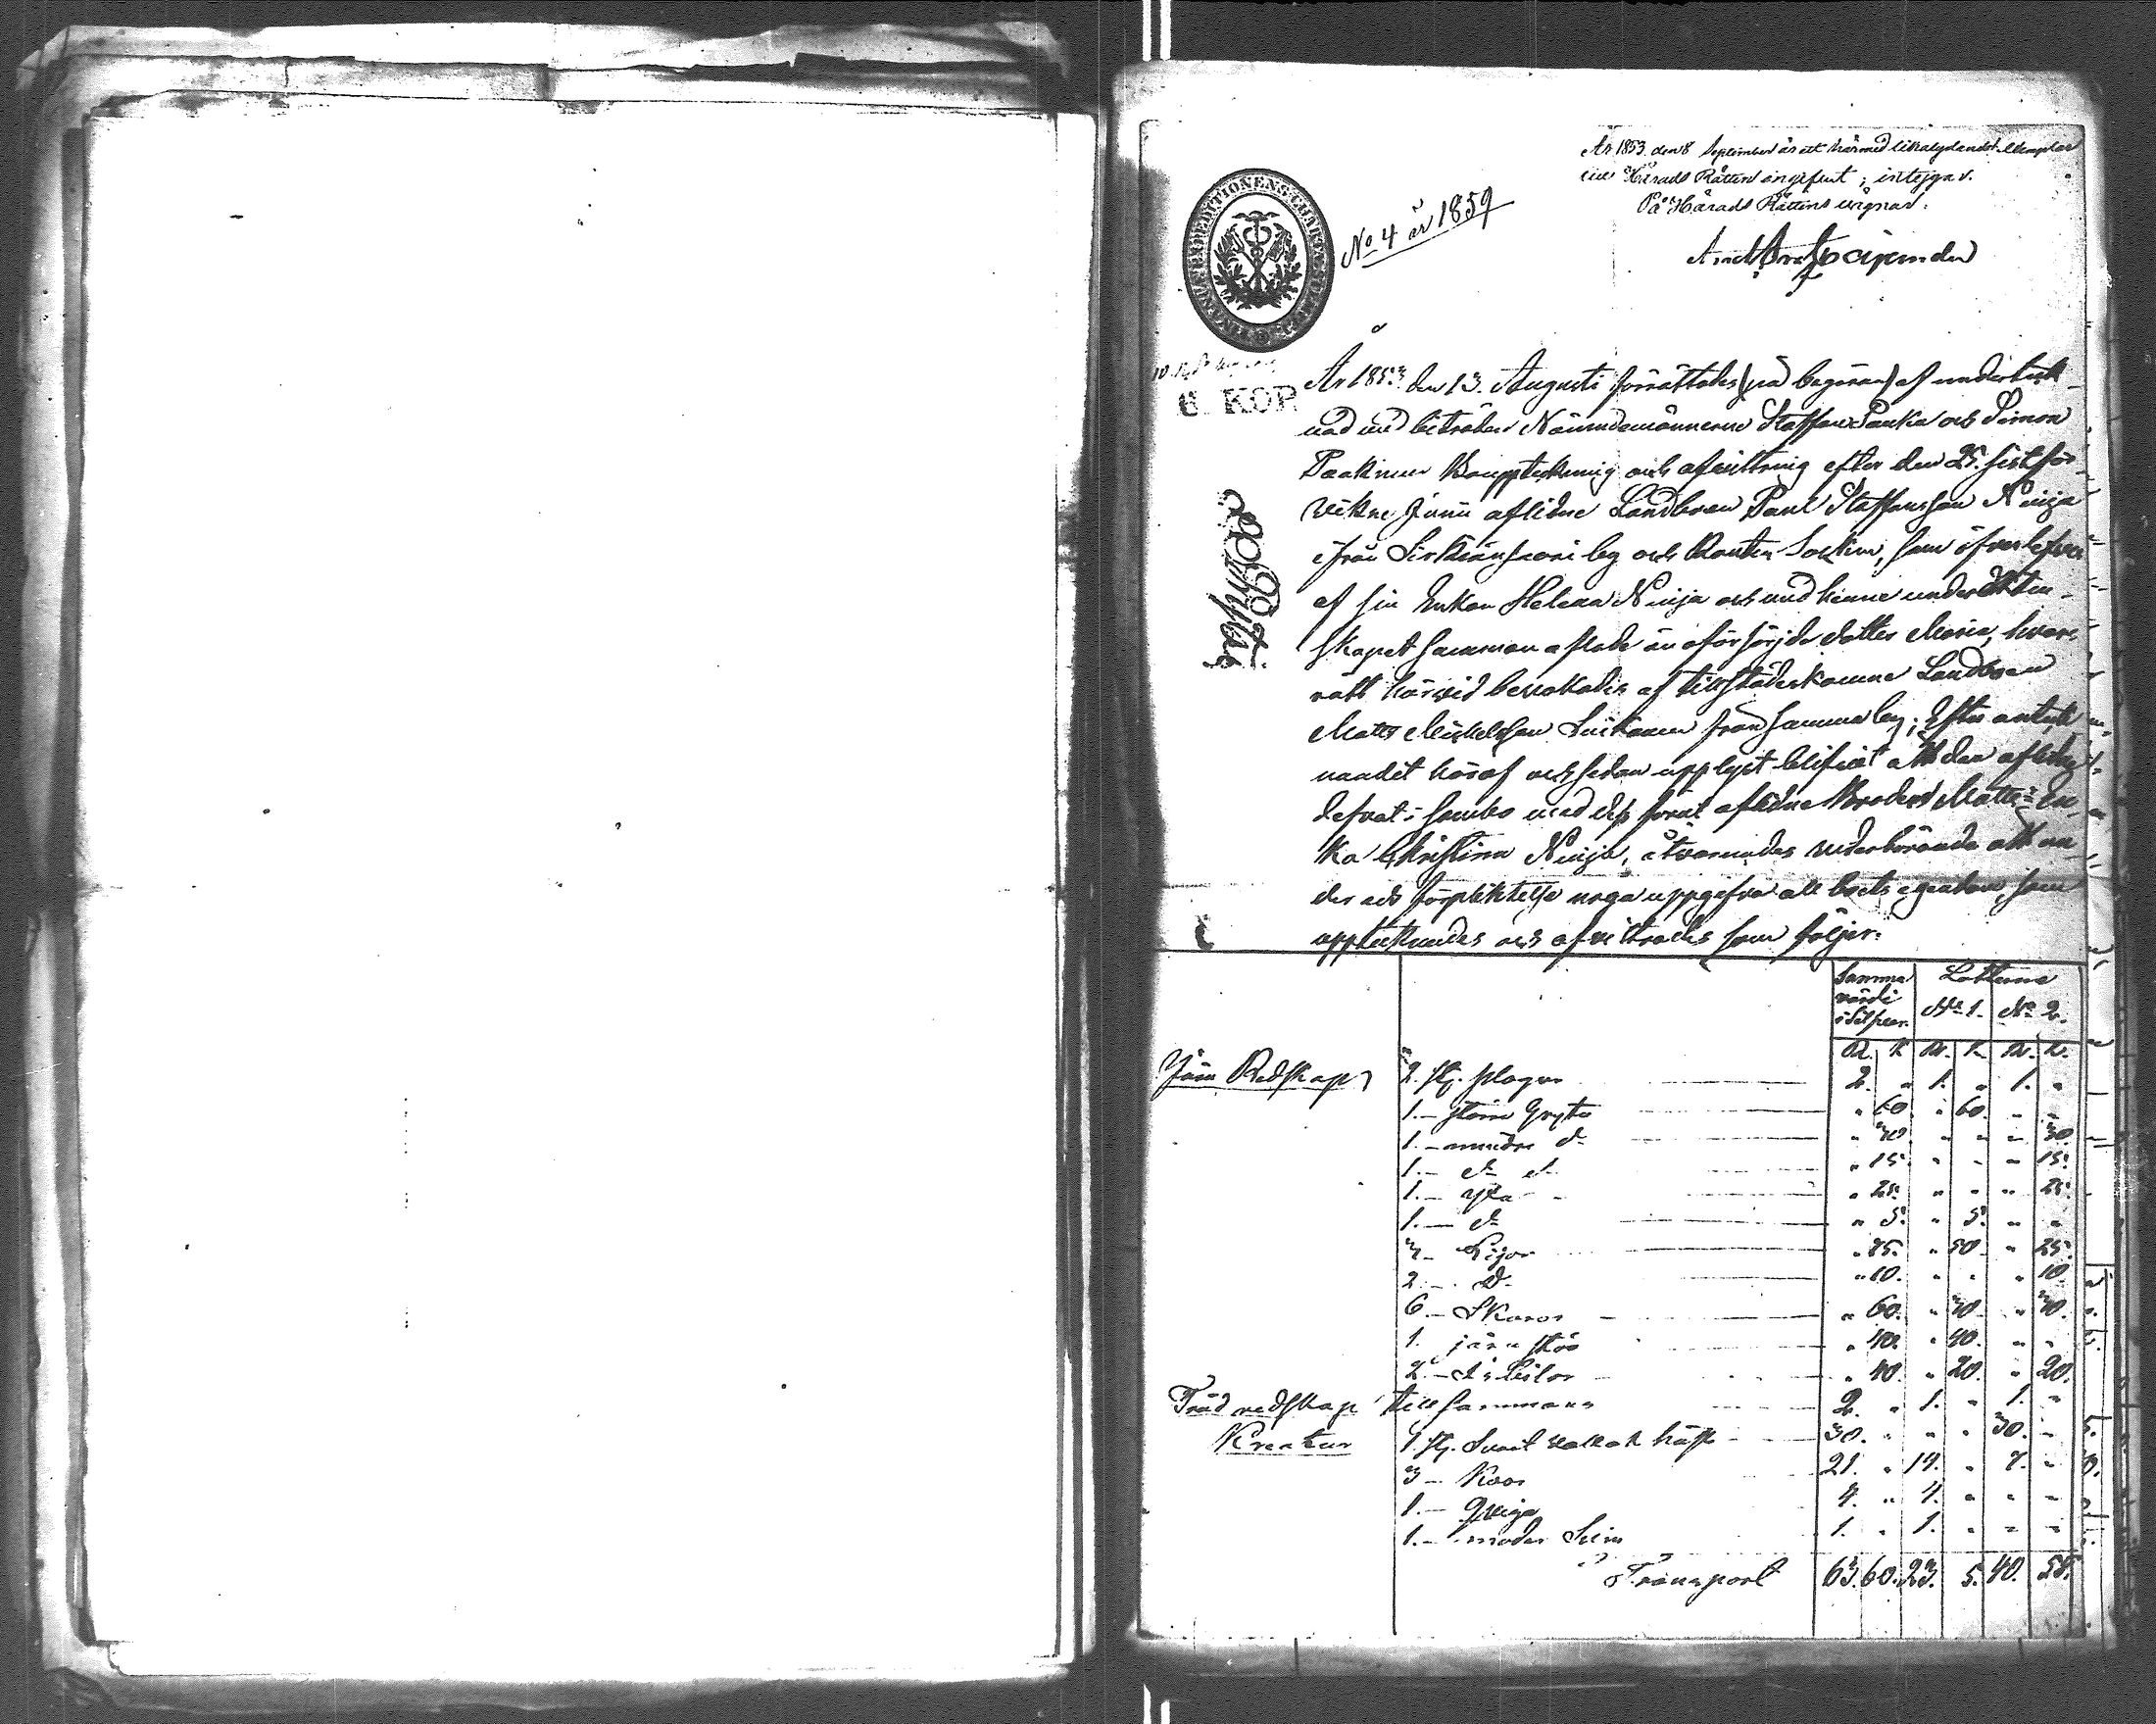 År 1853 den 8 September är ett härmed likalydande Exemplar
till Härads Rätten ingifvit; intygar.
På Härads Rättens vägnar:
No 4 år 1859
6 KOP
År 1853 den 13 Augusti förrättades (på begäran) af underteck-
nad med biträde af Nämndemännerne Staffan Paukku och Simon
Paakinen Bouppteckning och afvittring efter den 25 sistför-
vikne Junii aflidne Landboen Paul Staffansson Nuija
ifrån Sirkiänsaari by och Rautus Socken, som öfverlefves
af sin Enka Helena Nuija och med henne under ägten-
skapet sammanaflade oförsörjda dotter Maria, hvars
rätt härvid bevakades af tillstädeskomne Landboen
Matts Mickelsson Suikanen från samma by; Efter anteck-
nandet häraf och sedan upplyst blifvit att den aflidne
lefvat i sambo med dess förut aflidne Broders Matts En-
ka Christina Nuija, åtvarnades vederbörande att un-
der eds förpliktelse noga uppgifva all boets egendom, som
upptecknades och afvittrades som följer:
Summa Lotterne
värde
i Silfver. No 1. No 2.
R. K. R. K. R. K.
Järn Redskap 2. st. plogar 2. " 1. " 1. "
1.— större Gryta " 60. " 60. " "
1.— mindre do " 30. " " " 30.
1.— do do " 15. " " " 15.
1.— Yxa " 25. " " " 25.
1.— do " 5. " 5. " "
3.— Lijor " 75. " 50. " 25.
2.— do " 10. " " " 10.
6.— Skäror " 60. " 30. " 30.
1. järn stör " 40. " 40. " "
2.— " 40. " 20. " 20.
Träd redskap tillsammans 2. " 1. " 1. "
Kreatur 1. st. Svart vallack häst 30. " " " 30. "
3— Koor 21. " 14. " 7. "
1.— Qviga 4. " 4. " " "
1.— moder Svin 1. " 1. " " "
Transport 63. 60. 23. 5. 40. 55.